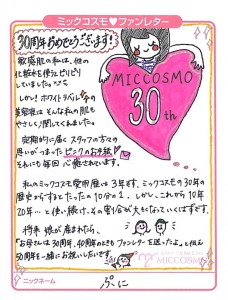 ミックコスモ♥ファンレター
30周年おめでとうございます!
敏感肌の私は、他の
化粧水を使うとピリピリ
していました。
しかし!ホワイトラベルの
美容液はそんな私の肌も
やさしく潤してくれました。
定期的に届く スタッフの方々の
思いがつまった ピンクのお手紙
それにも毎回 心癒されています。
MICCOSMO
30th
私のミックコスモ愛用歴は3年です。ミックコスモの30年の
歴史からすると たったの10分の1。しかし、これから10年
20年…と使い続け、その割合が大きくなっていくはずです。
将来 娘が産まれたら、
「お母さんは30周年、40周年のときもファンレターを送ったよ」と伝え
50周年を一緒にお祝いしたいです。
MICCOSMO
ニックネーム
ぷに